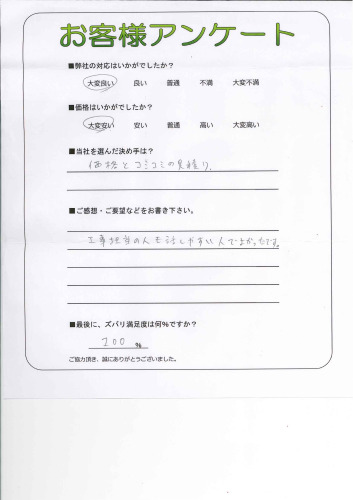 お客様アンケート
■弊社の対応はいかがでしたか？
大変良い 良い 普通 不満 大変不満
■価格はいかがでしたか？
大変安い 安い 普通 高い 大変高い
■当社を選んだ決め手は？
価格とコミコミの見積り。
■ご感想・ご要望などをお書き下さい。
工事担当の人も話しやすい人でよかったです。
■最後に、ズバリ満足度は何％ですか？
200 ％
ご協力頂き、誠にありがとうございました。